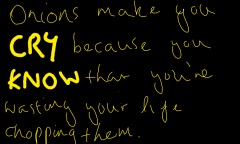 Onions make you
CRY because you
KNOW that you're
wasting your life
chopping them.